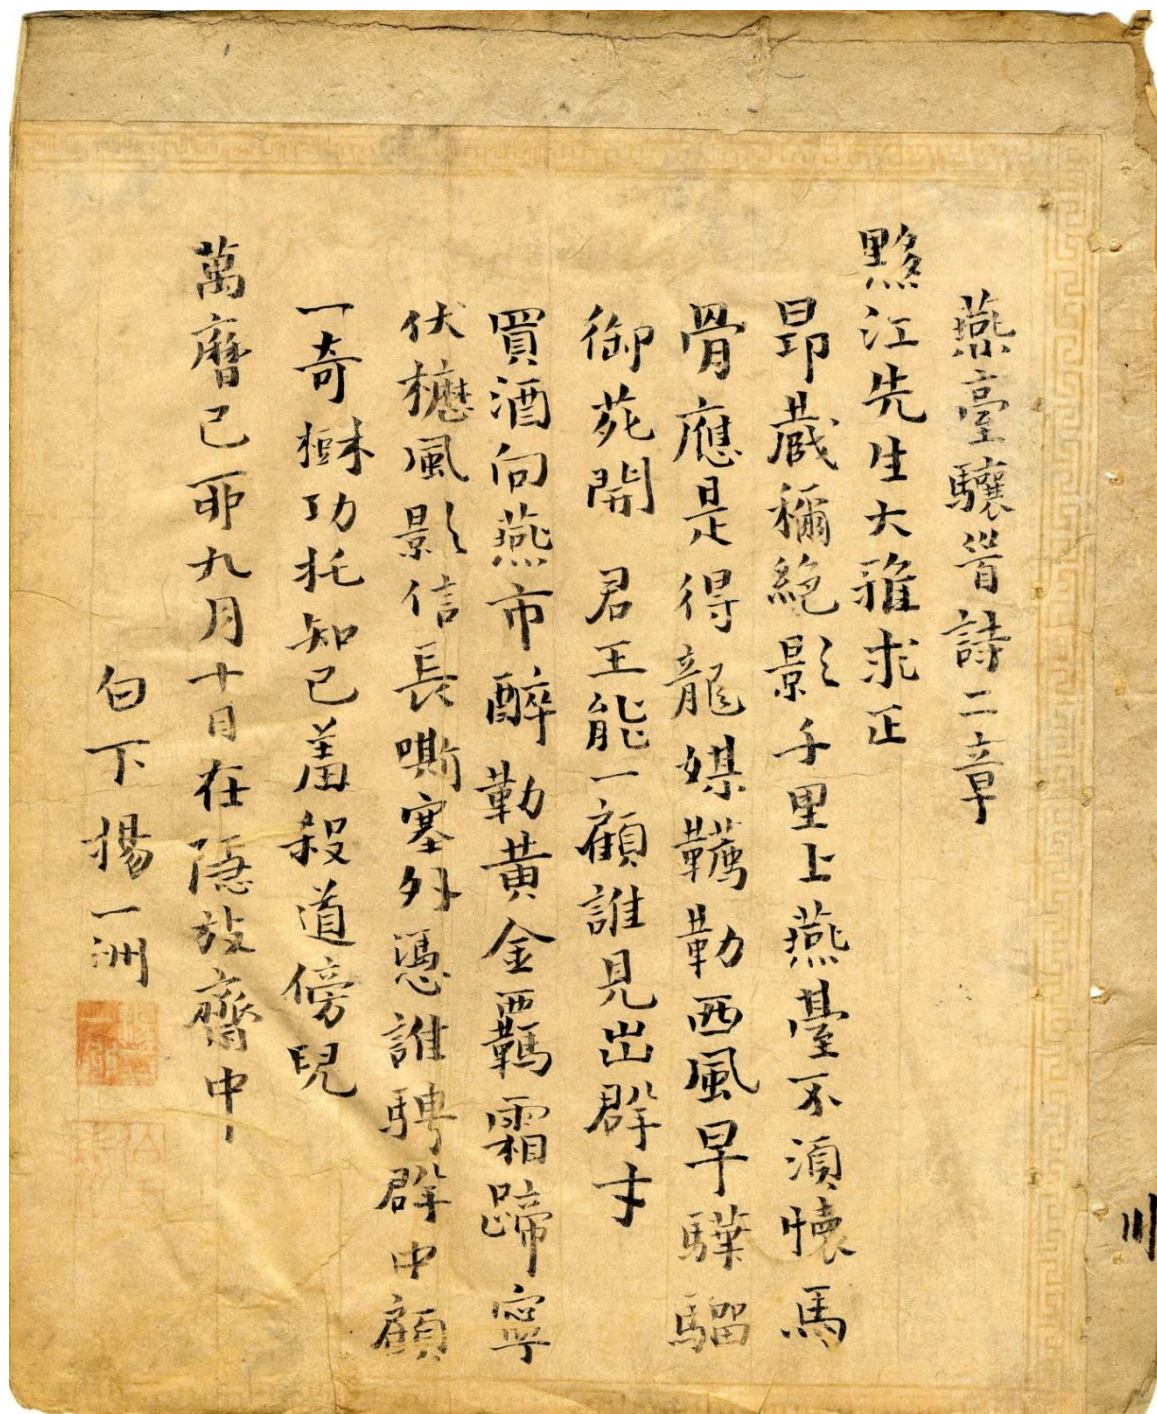 燕臺驤首詩二章
黟江先生大雅求正
昂藏稱絕影千里上燕臺不須懷馬
骨應是得龍媒韉勒西風早驊騮
御苑開 君王能一顧誰見出群才
買酒向燕市醉勒黃金羈霜蹄寧
伏櫪風影信長嘶塞外憑誰騁群中顧
一奇酬功托知己羞殺道傍兒
萬曆己卯九月十日在隱放齋中
白下楊一洲